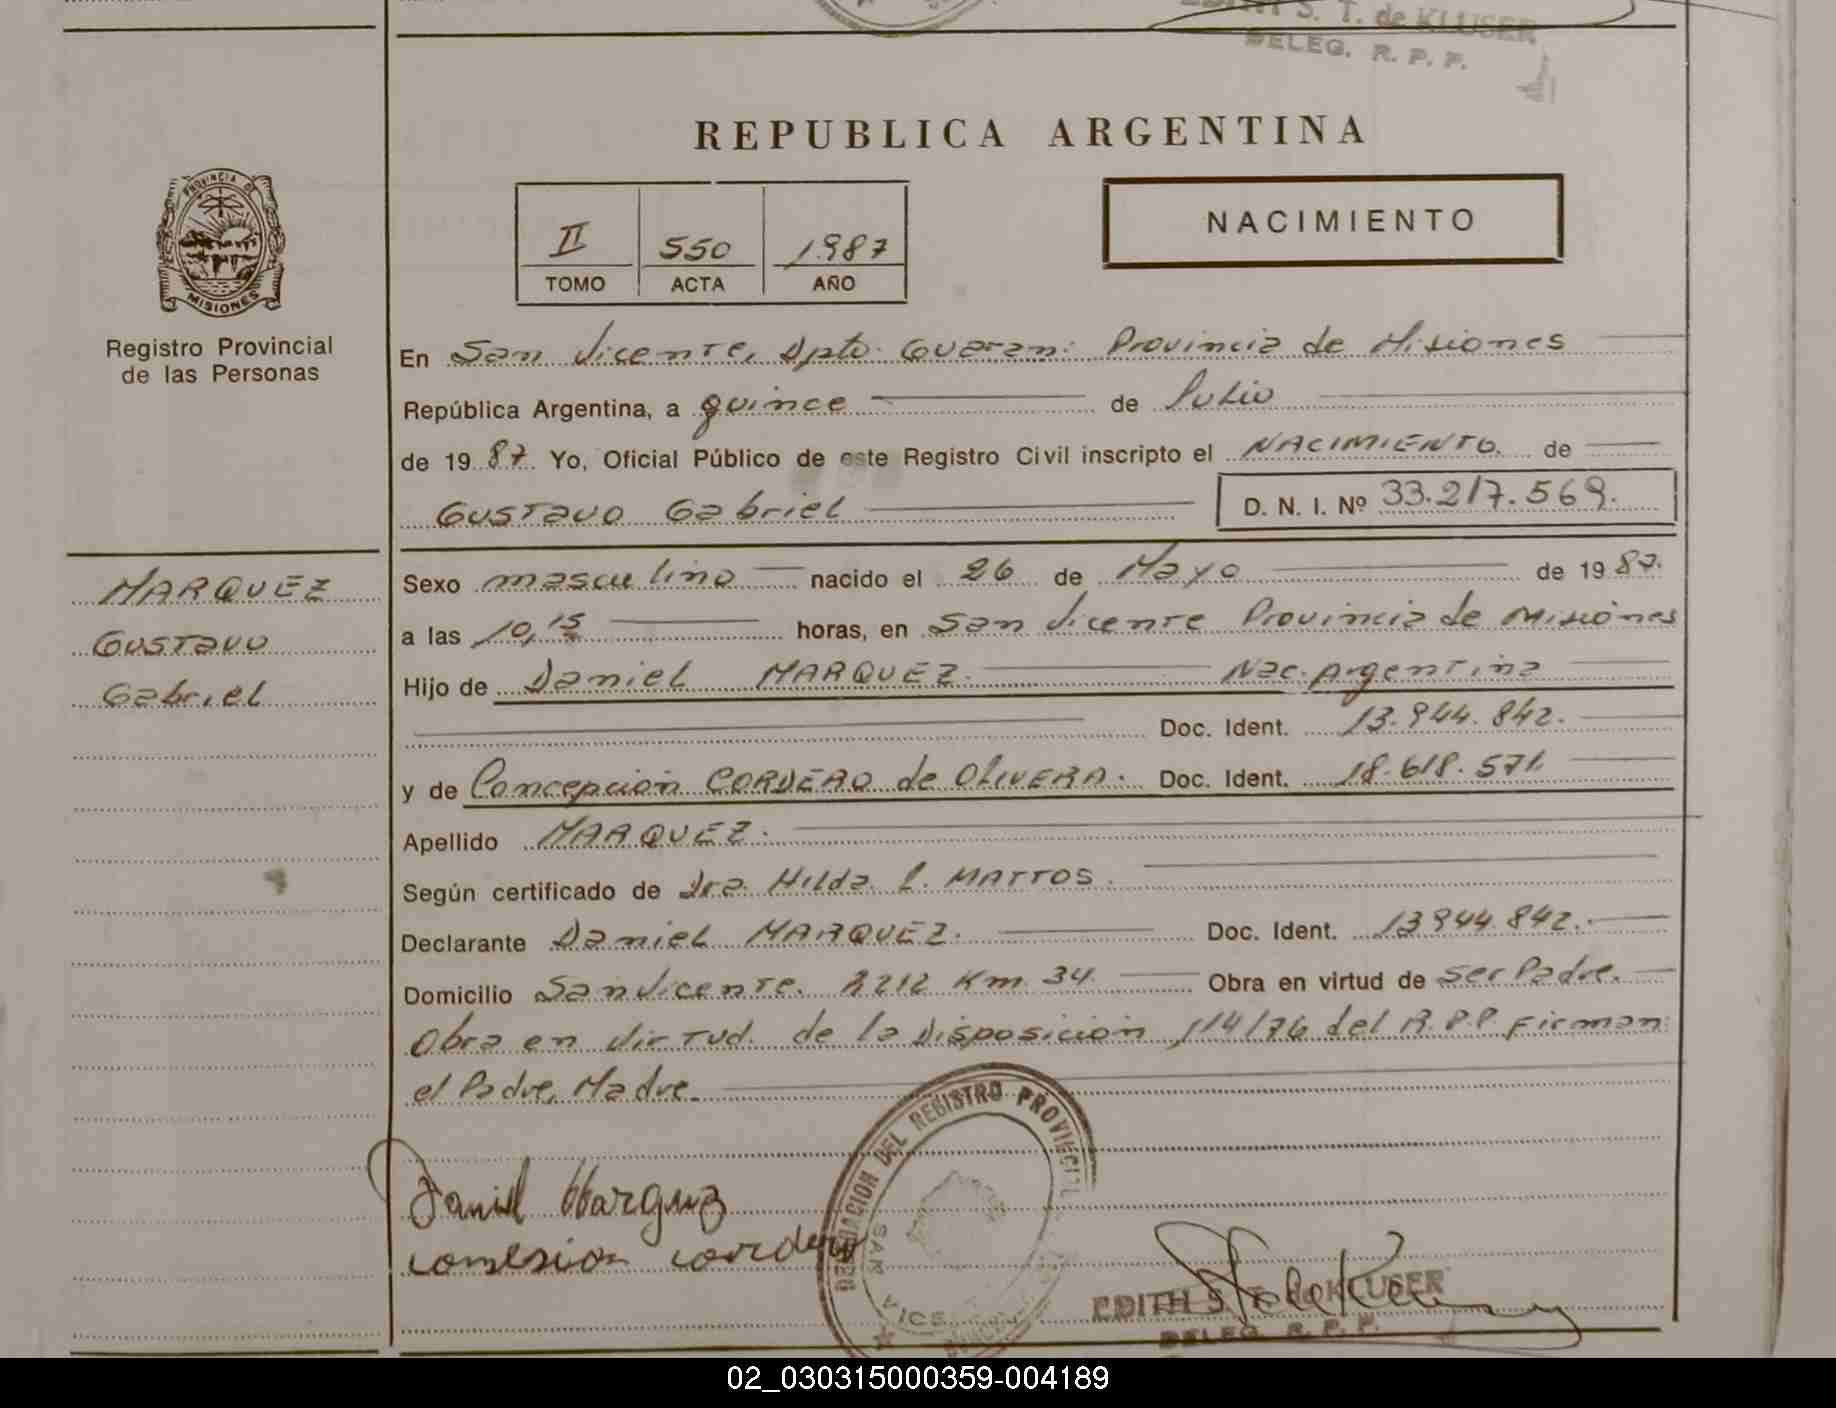 EDITH S. T. de KLUSER
DELEG. R. P. P.
REPUBLICA ARGENTINA
PROVINCIA DE
MISIONES
Registro Provincial
de las Personas
II 550 1987
TOMO ACTA AÑO
NACIMIENTO
En San Vicente, Dpto. Guarani Provincia de Misiones
República Argentina, a quince de Julio
de 1987. Yo, Oficial Público de este Registro Civil inscripto el NACIMIENTO. de
Gustavo Gabriel D. N. I. Nº 33.217.569.
MARQUEZ
Gustavo
Gabriel
Sexo masculino nacido el 26 de Mayo de 1987.
a las 10,15 horas, en San Vicente Provincia de Misiones
Hijo de Daniel MARQUEZ. Nac. Argentina
Doc. Ident. 13.944.842.
y de Concepción CORDERO de OLIVERA. Doc. Ident. 18.618.571.
Apellido MARQUEZ.
Según certificado de Dra. Hilda L. MATTOS.
Declarante Daniel MARQUEZ. Doc. Ident. 13944.842.
Domicilio San Vicente. R212 Km. 34. Obra en virtud de ser Padre.
Obra en virtud. de la Disposición 114/76 del R.P.P. Firman:
el Padre, Madre.
DELEGACION DEL REGISTRO PROVINCIAL
SAN VICE
Daniel Marquez
consesion cordero
EDITH S. T. de KLUSER
DELEG. R. P. P.
02_030315000359-004189